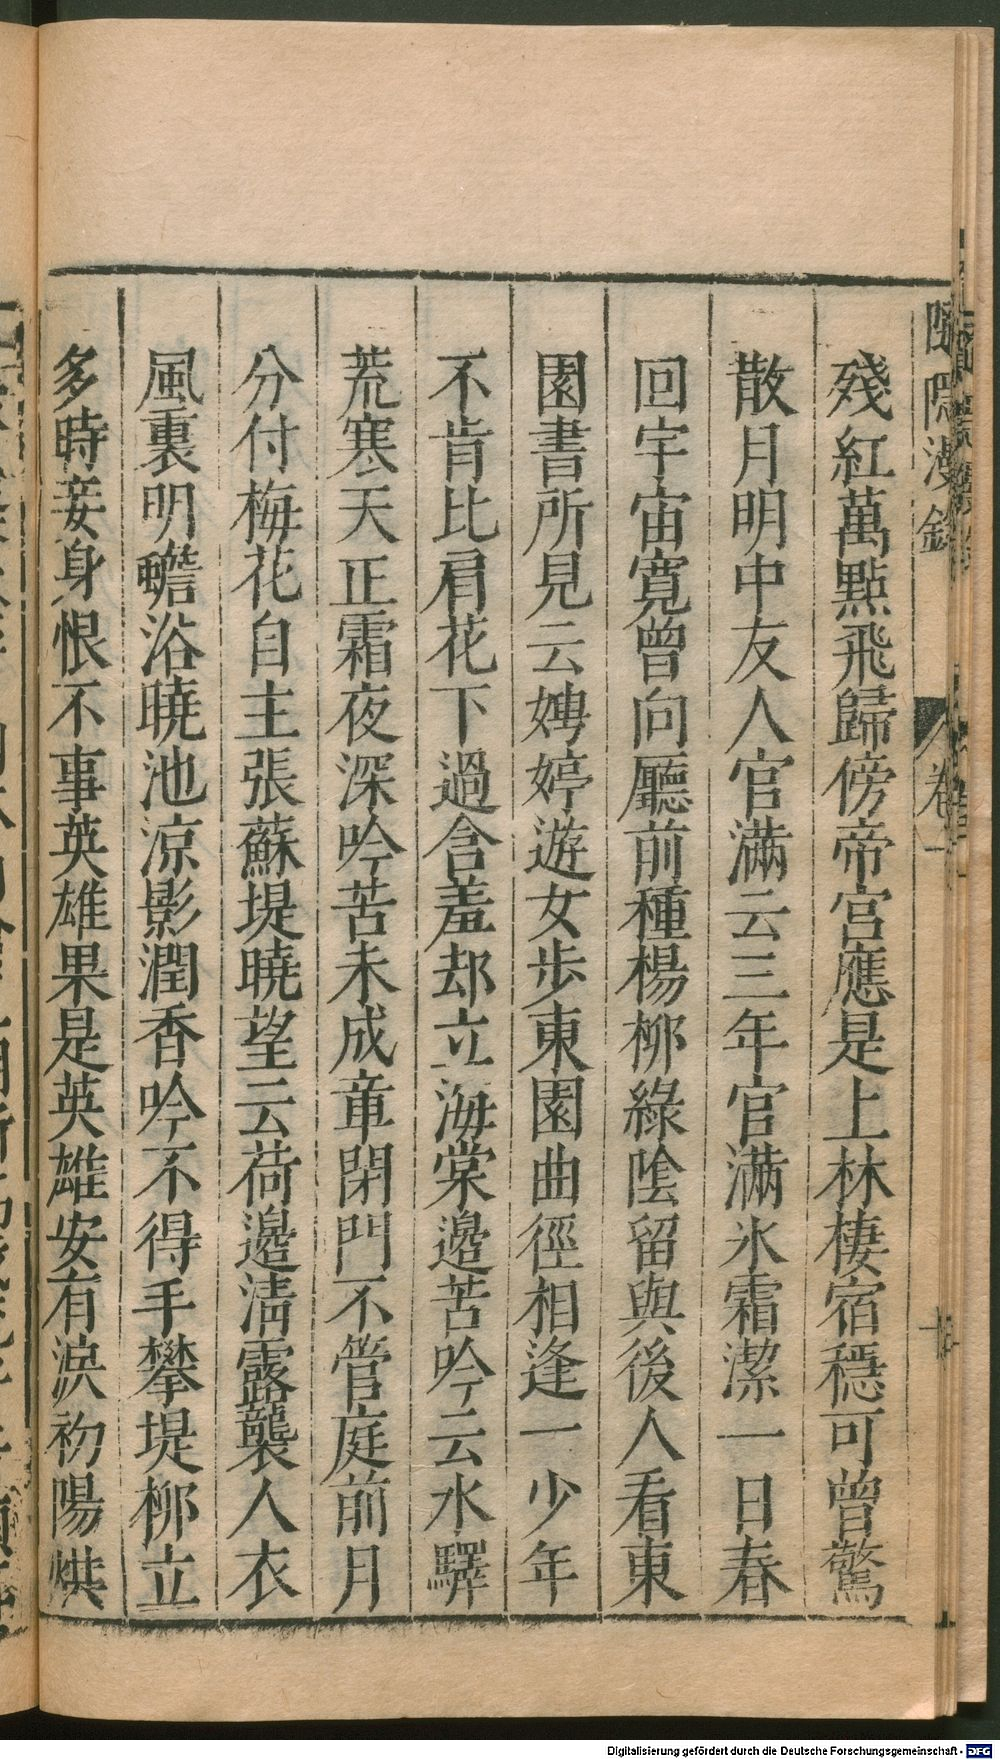 隨隱漫錄
卷一
殘紅萬點飛歸傍帝宮應是上林棲宿穩可曾驚
散月明中友人官滿云三年官滿氷霜潔一日春
回宇宙寬曾向廳前種楊柳綠陰留與後人看東
園書所見云娉婷遊女步東園曲徑相逢一少年
不肯比肩花下過含羞却立海棠邊苦吟云水驛
荒寒天正霜夜深吟苦未成章閉門不管庭前月
分付梅花自主張蘇堤曉望云荷邊清露襲人衣
風裏明蟾浴曉池凉影潤香吟不得手攀堤柳立
多時妾身恨不事英雄果是英雄安有淚初陽烘
Digitalisierung gefördert durch die Deutsche Forschungsgemeinschaft - DFG